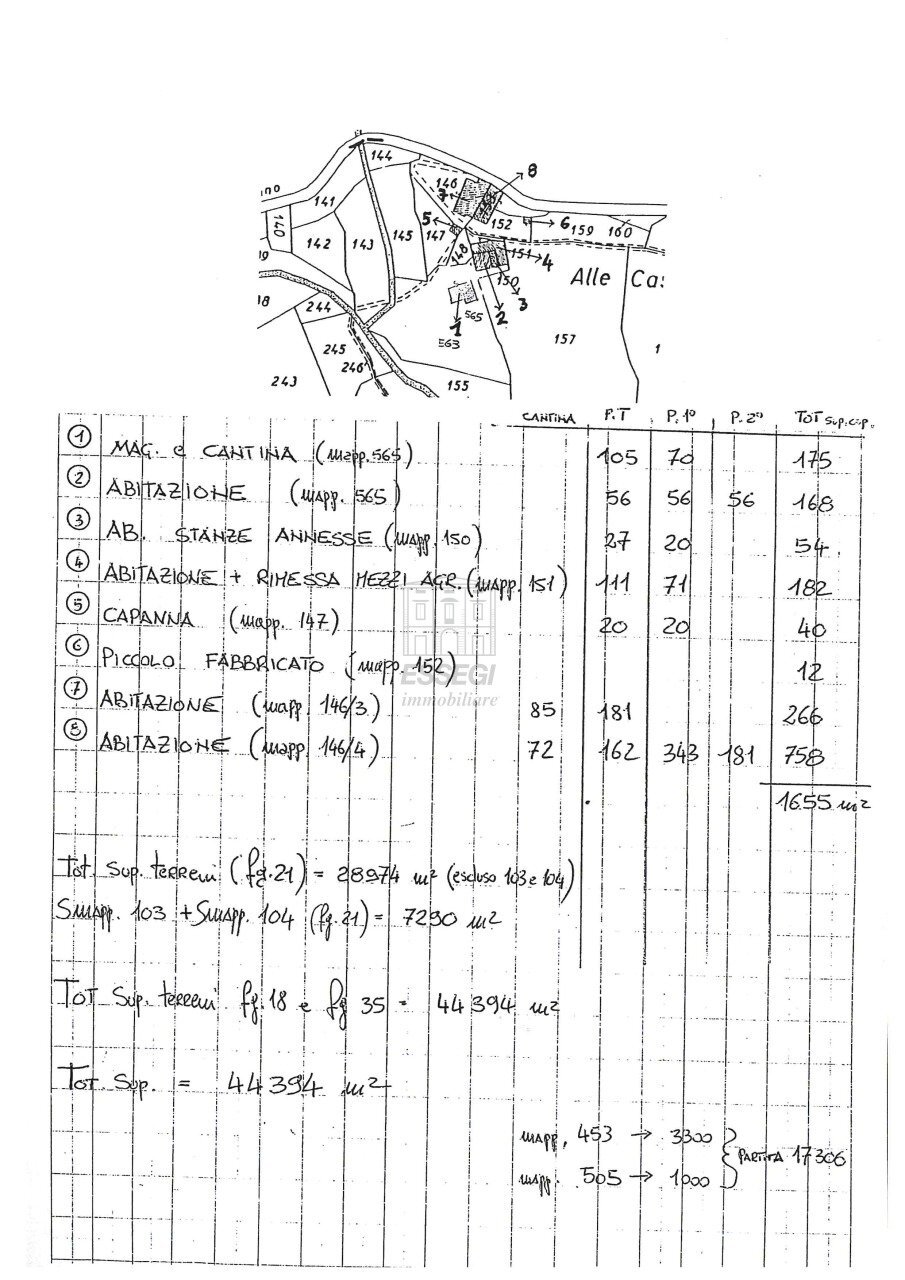 ino
144
8
146
7
141
140
5
152
6
159
160
142
143
145
147
148
151
4
19
150
Alle Ca
3
18
244
565
2
1
563
157
245
246
243
155
1
CANTINA P.T P.1° P.2° TOT sup.cop.
1 MAG. e CANTINA (mapp. 565) 105 70 175
2 ABITAZIONE (mapp. 565) 56 56 56 168
3 AB. STANZE ANNESSE (mapp. 150) 27 20 54
4 ABITAZIONE + RIMESSA MEZZI AGR. (mapp. 151) 111 71 182
5 CAPANNA (mapp. 147) 20 20 40
6 PICCOLO FABBRICATO (mapp. 152) 12
ESSEGI
immobiliare
7 ABITAZIONE (mapp. 146/3) 85 181 266
8 ABITAZIONE (mapp. 146/4) 72 162 343 181 758
1655 m²
Tot. Sup. terreni (fg.21) = 28974 m² (escluso 103 e 104)
Smapp. 103 + Smapp. 104 (fg.21) = 7290 m²
TOT Sup. terreni fg.18 e fg 35 = 44394 m²
TOT. Sup. = 44394 m²
mapp. 453 → 3300
PARTITA 17306
mapp. 505 → 1000